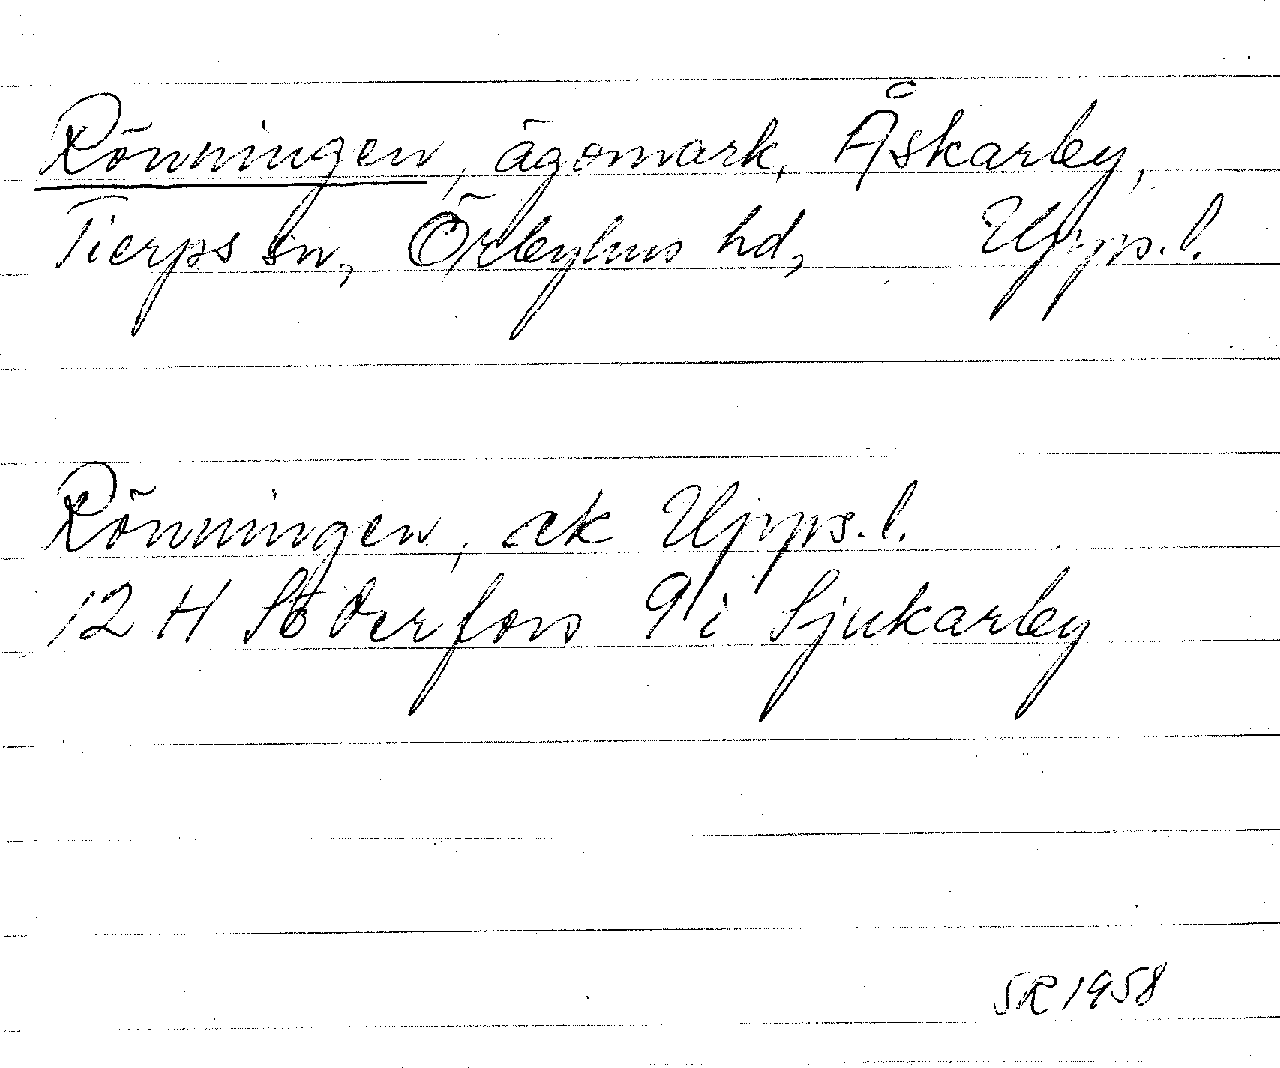 Rönningen, ägomark, Åskarby,
Tierps sn, Örbyhus hd, Upps. l.
Rönningen, ek Upps. l.
12 H Söderfors 9 i Sjukarby
SR 1958